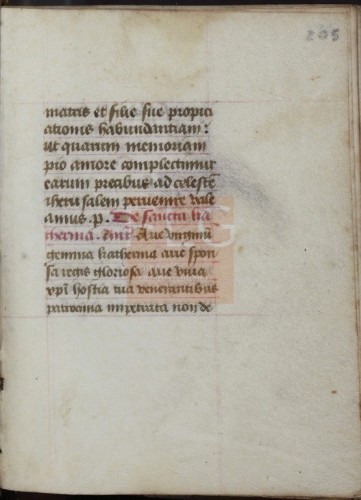 205
matris et filie sue propici
ationis habundantiam:
ut quarum memoriam
pio amore complectimur
earum precibus ad celestē
iherusalem pervenire vale
amus. p. De sancta ka
therina. Ant̄ Ave virginū
gemma katherina ave spon
sa regis gloriosa ave viva
xpī hostia tua venerantibus
patrocinia impetrata non de